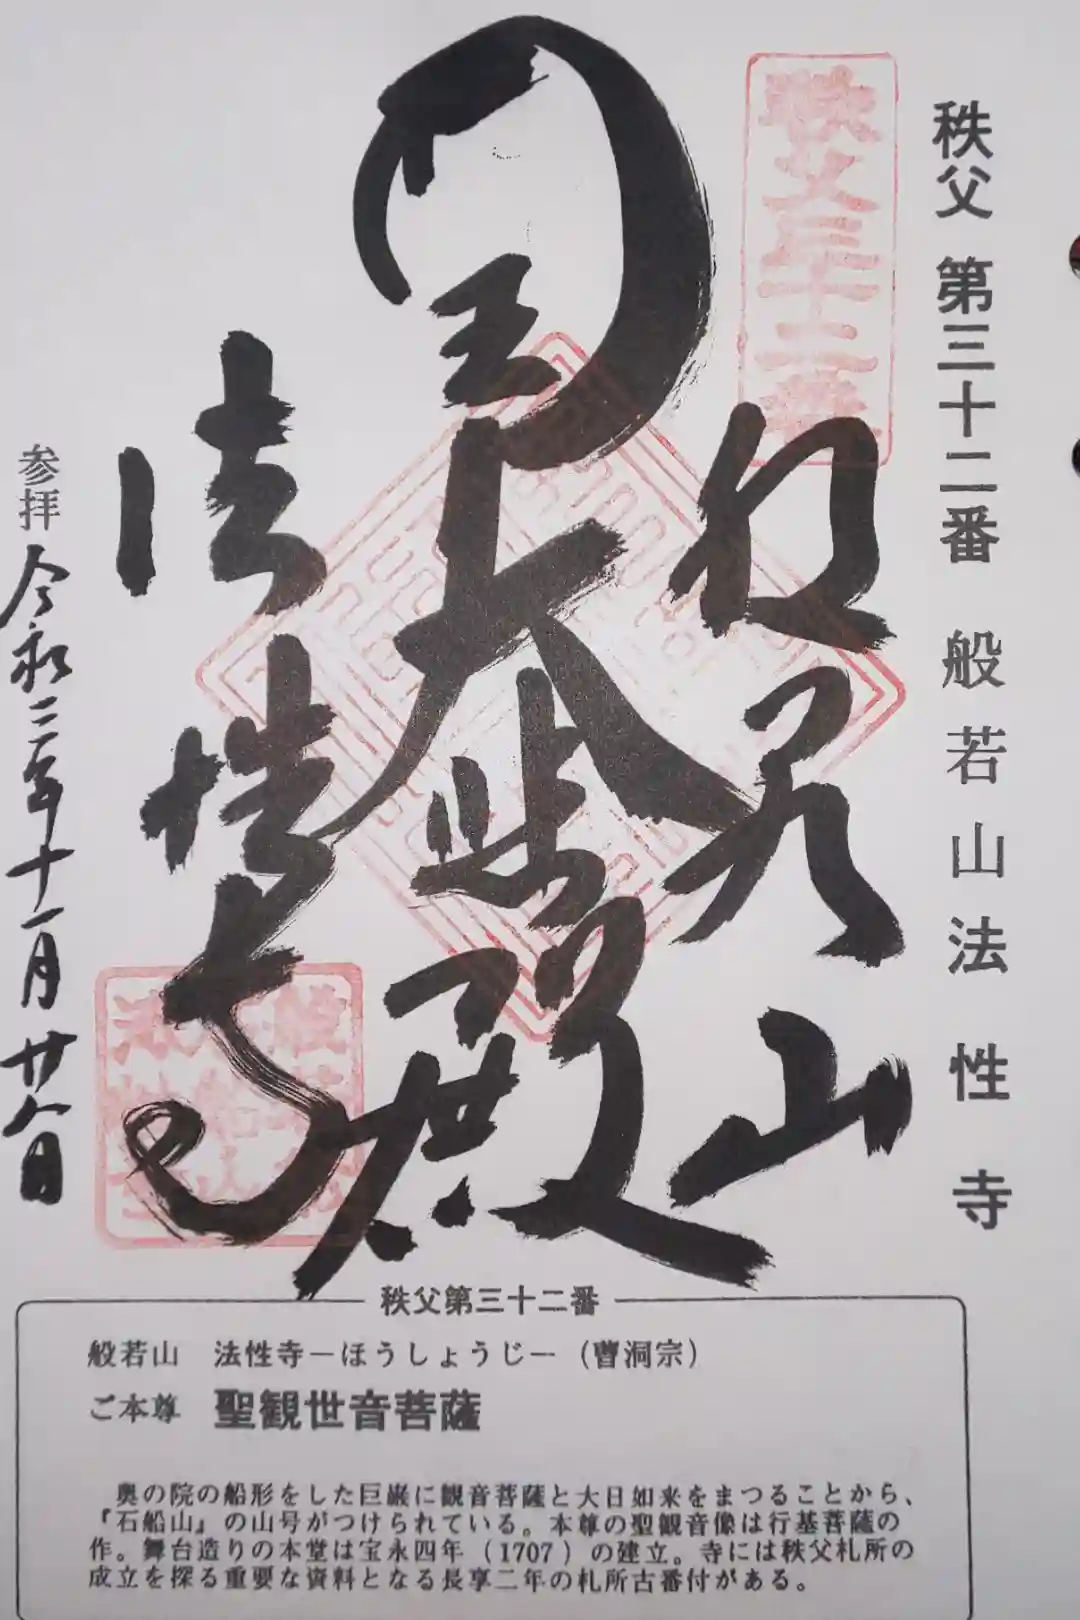 秩父 第三十二番 般若山法性寺
秩父三十二番
般若山
圓大悲殿
法性寺
参拝 令和二年十一月廿八日
秩父第三十二番
般若山 法性寺－ほうしょうじ－（曹洞宗）
ご本尊 聖観世音菩薩
奥の院の船形をした巨巌に観音菩薩と大日如来をまつることから、
『石船山』の山号がつけられている。本尊の聖観音像は行基菩薩の
作。舞台造りの本堂は宝永四年（1707）の建立。寺には秩父札所の
成立を探る重要な資料となる長享二年の札所古番付がある。